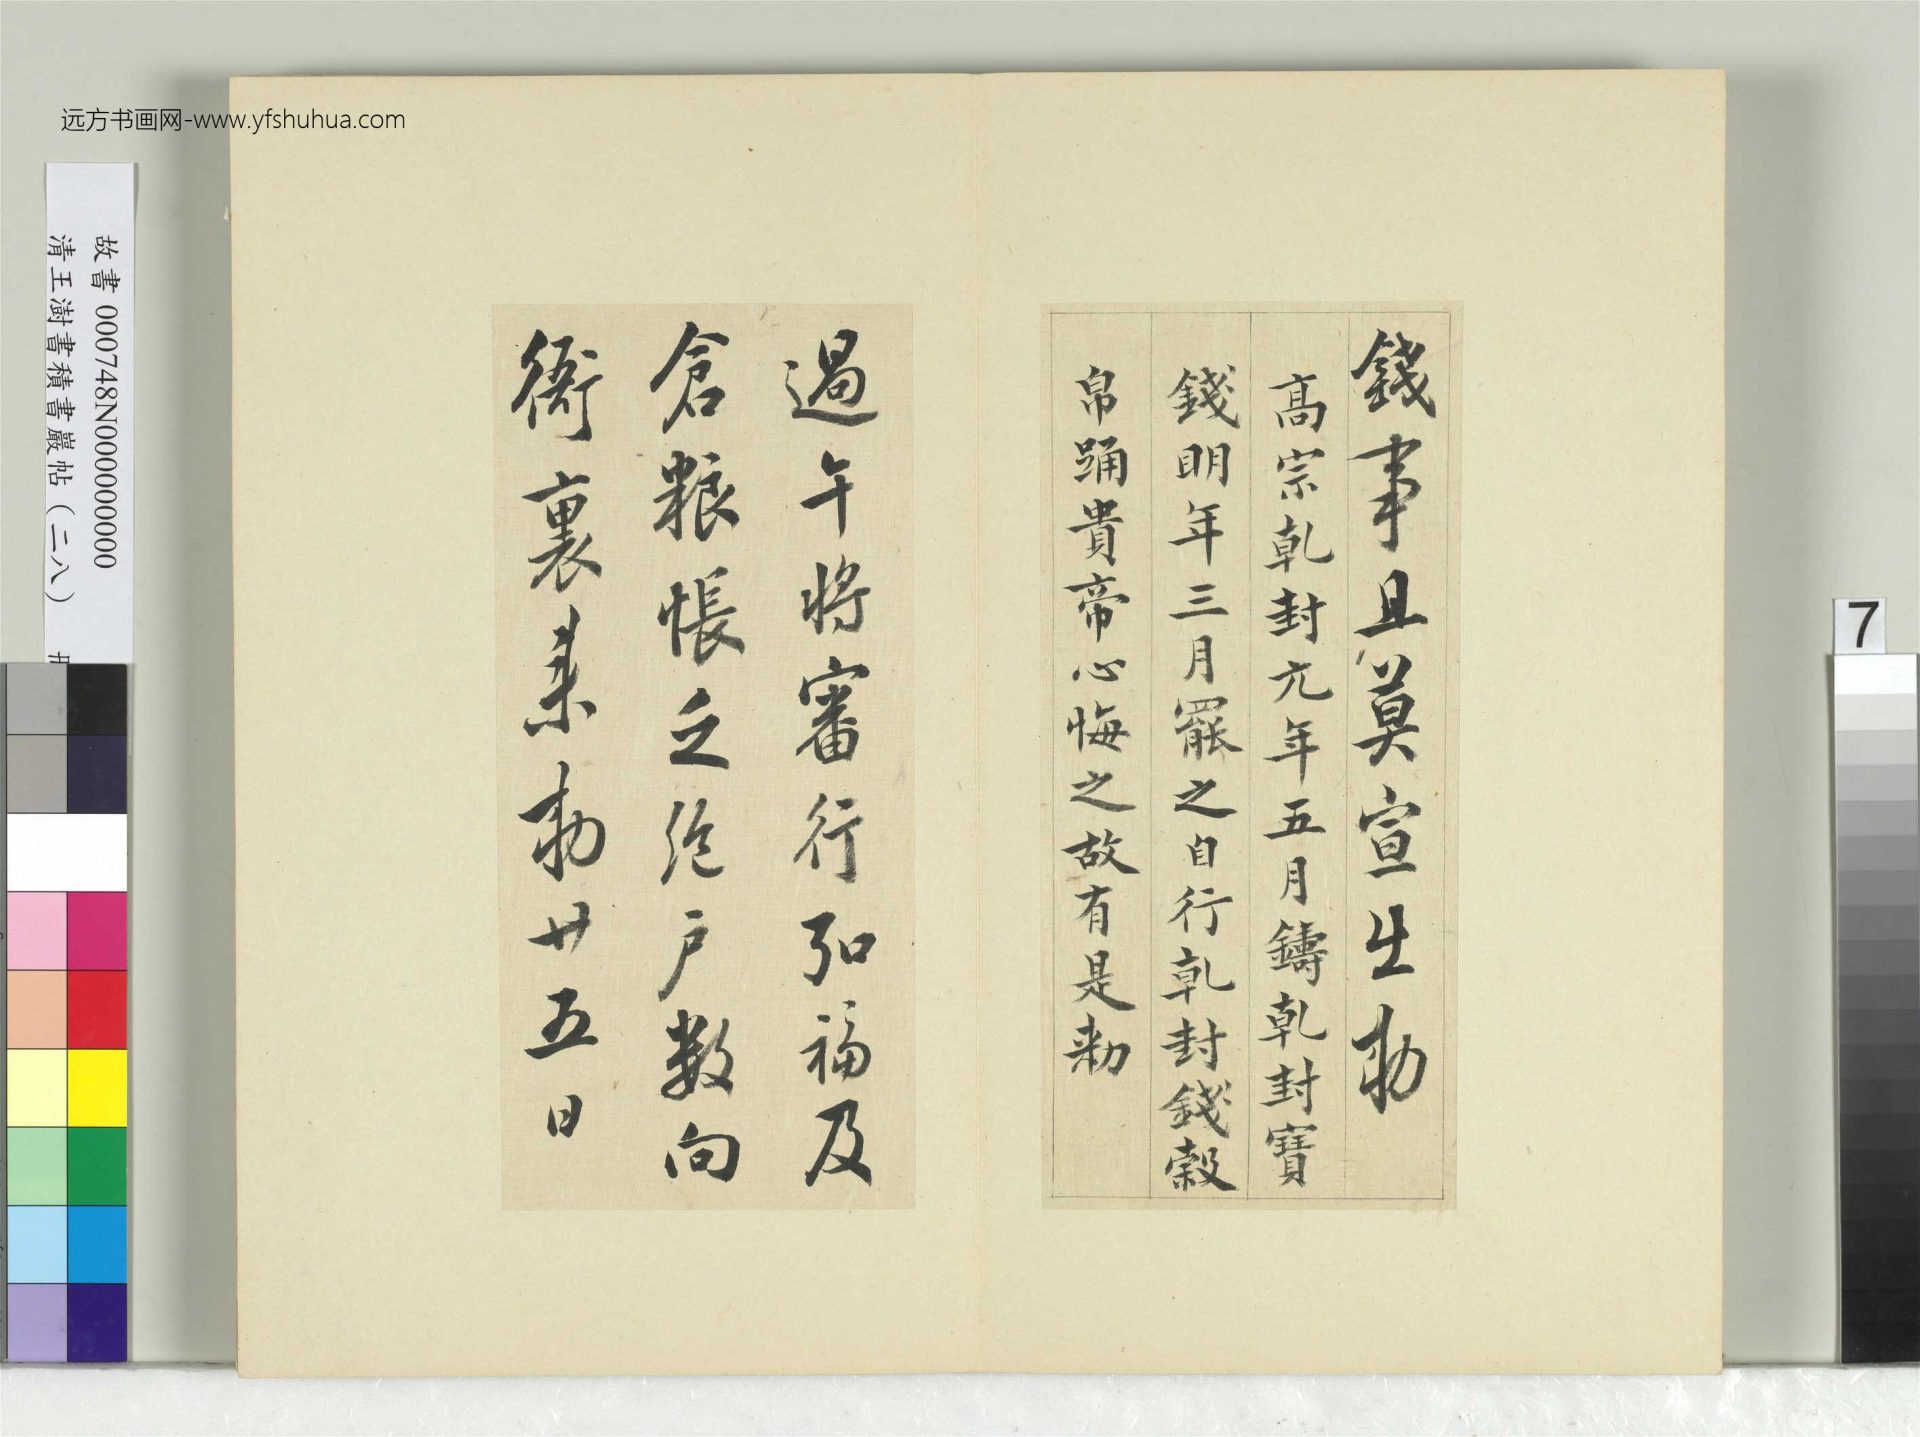 远方书画网-www.yfshuhua.com
故書 000748N000000000
清王澍書積書巖帖（二八）
7
錢事且莫宣出勅
高宗乾封元年五月鑄乾封寶
錢明年三月罷之自行乾封錢穀
帛踊貴帝心悔之故有是勅
過午將審行弘福及
倉粮帳之従户數向
衙裏來勅廿五日